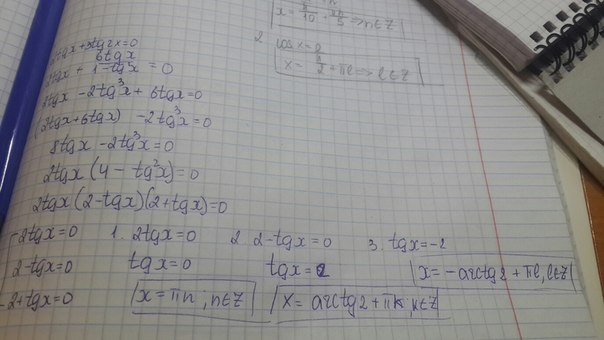 x = π/10 + πn/5 => n∈Z
2. cos x = 0
x = π/2 + πl => l∈Z
2tgx + 3tg2x = 0
2tgx + 6tgx/(1 - tg²x) = 0
2tgx - 2tg³x + 6tgx = 0
(2tgx + 6tgx) - 2tg³x = 0
8tgx - 2tg³x = 0
2tgx (4 - tg²x) = 0
2tgx (2 - tgx)(2 + tgx) = 0
2tgx = 0   1. 2tgx = 0   2. 2 - tgx = 0   3. tgx = -2
2 - tgx = 0   tgx = 0   tgx = 2   x = -arctg2 + πl, l∈Z
2 + tgx = 0   x = πn; n∈Z   x = arctg2 + πk; k∈Z